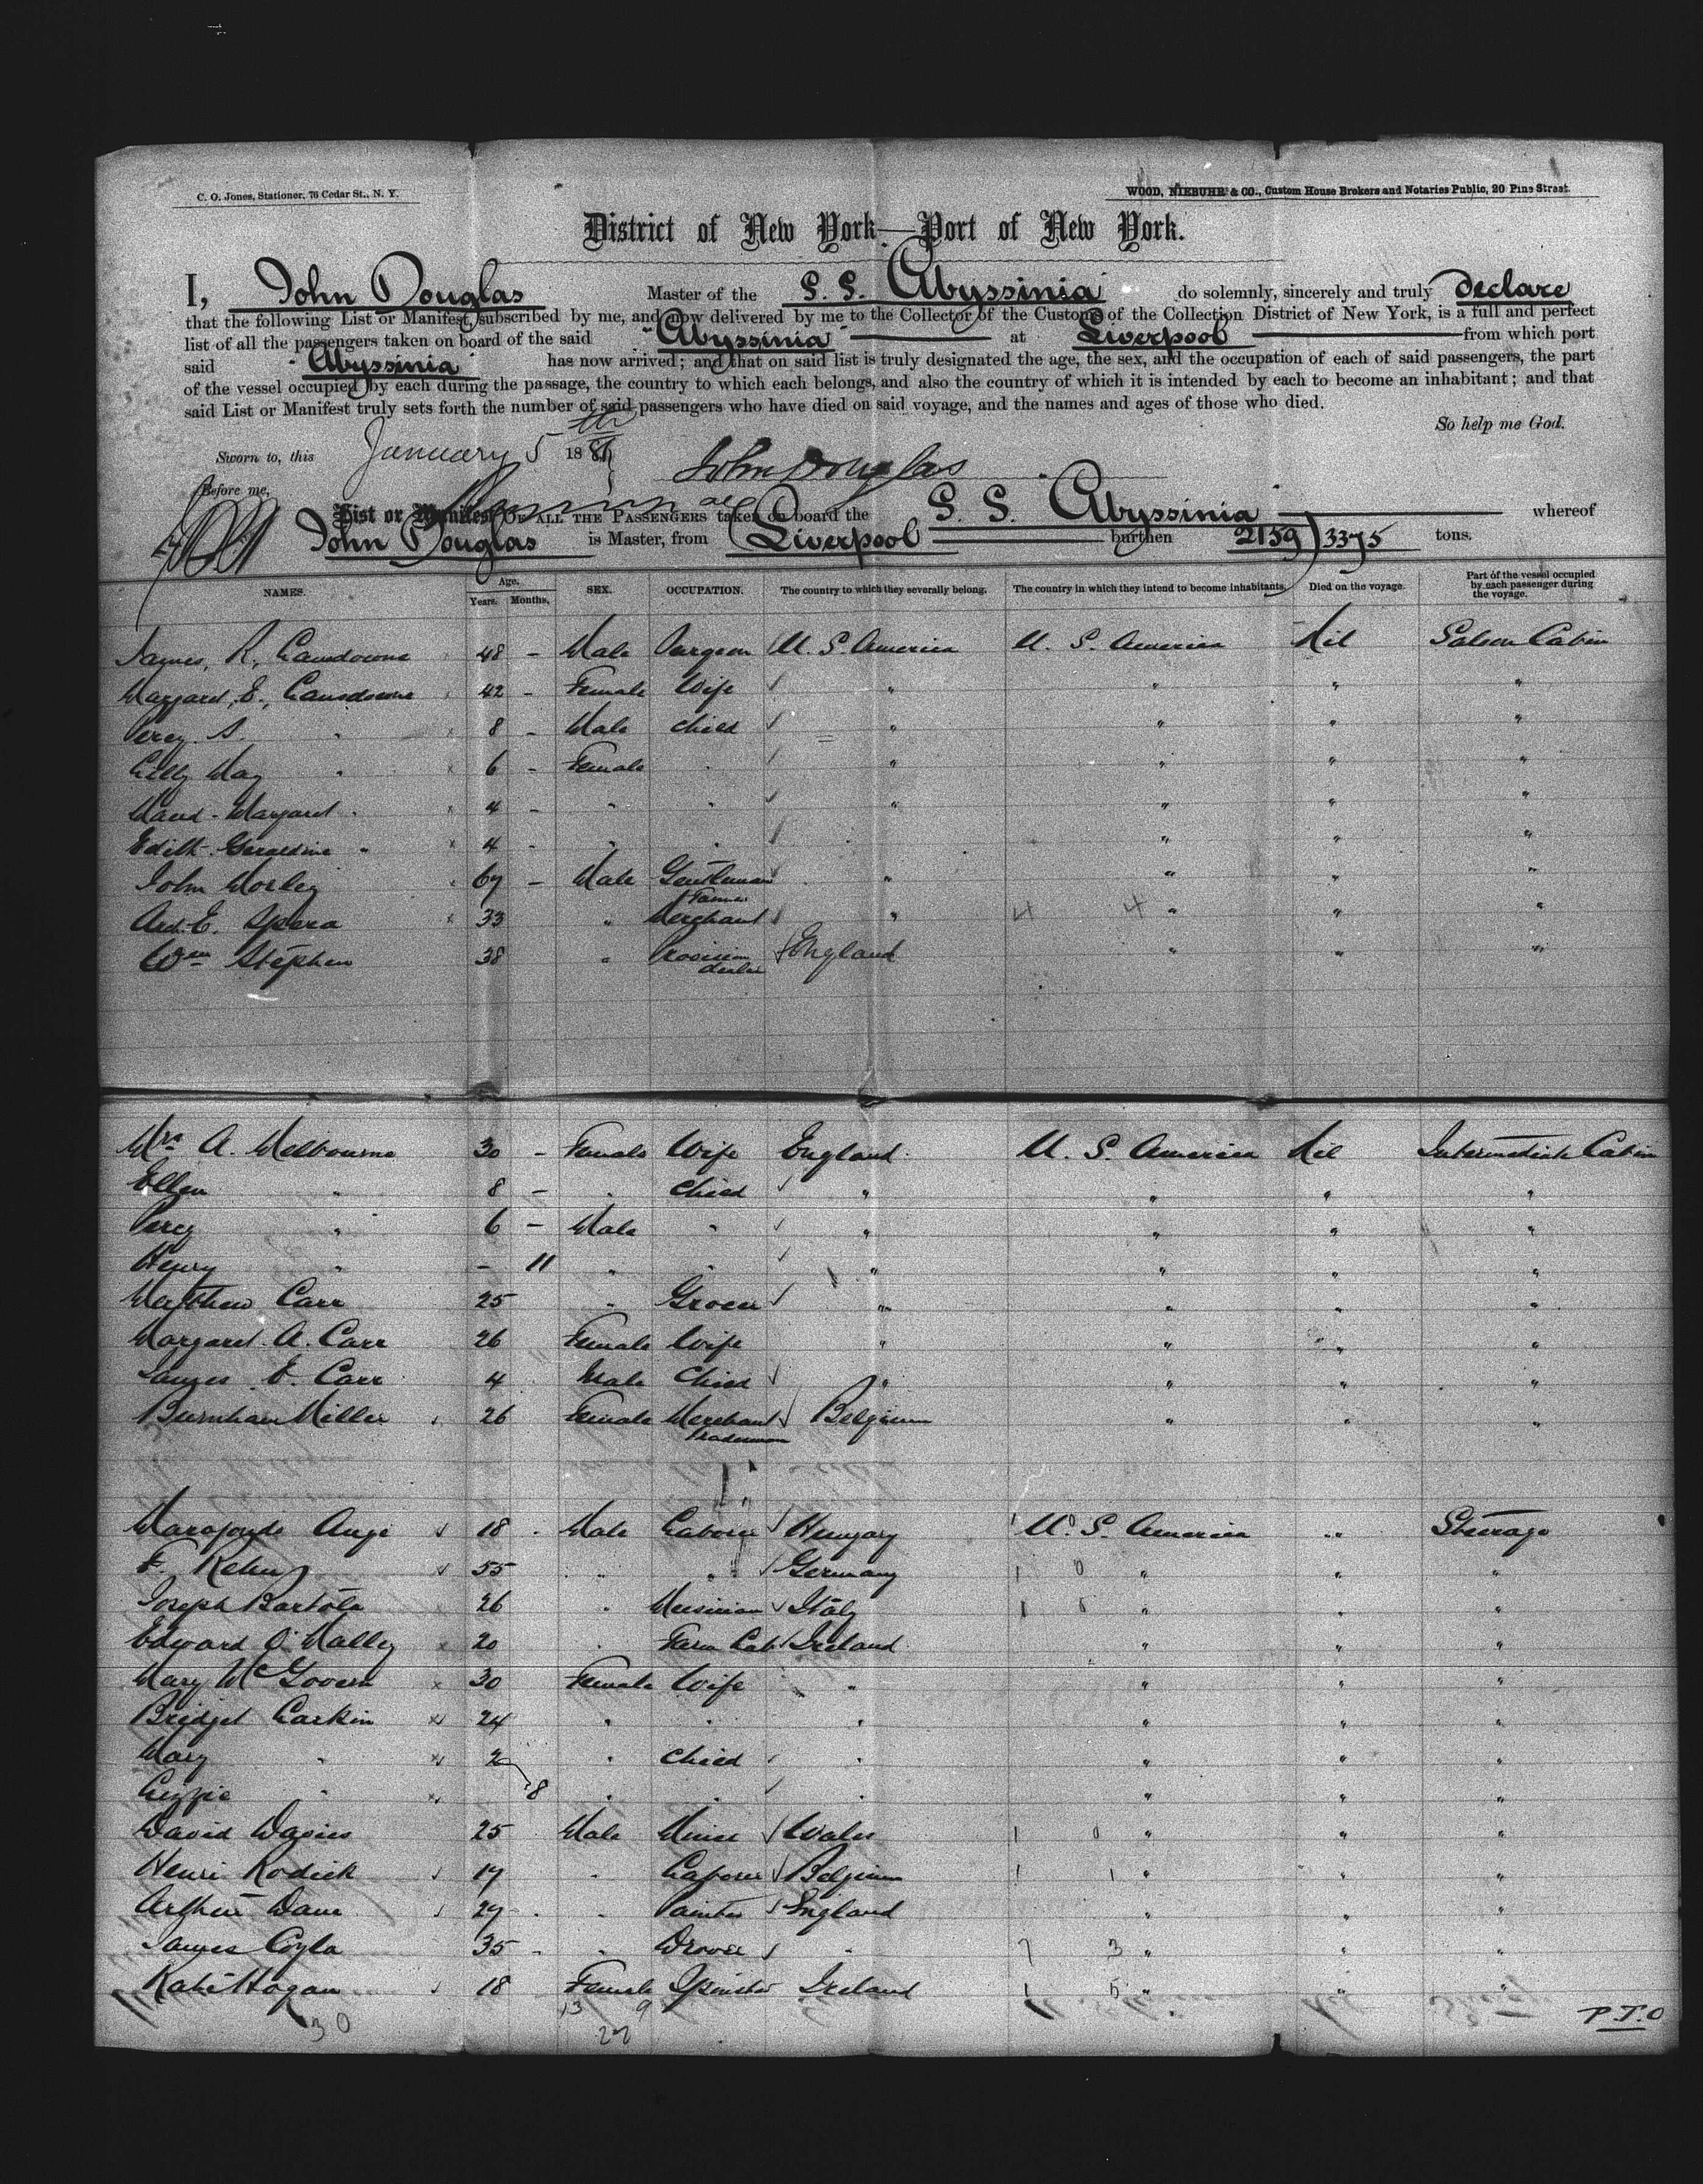 C. O. Jones, Stationer, 76 Cedar St., N. Y.
WOOD, NIEBUHR & CO., Custom House Brokers and Notaries Public, 20 Pine Street.
District of New York—Port of New York.
I, John Douglas Master of the S. S. Abyssinia do solemnly, sincerely and truly declare
that the following List or Manifest, subscribed by me, and now delivered by me to the Collector of the Customs of the Collection District of New York, is a full and perfect
list of all the passengers taken on board of the said "Abyssinia" at Liverpool from which port
said "Abyssinia" has now arrived; and that on said list is truly designated the age, the sex, and the occupation of each of said passengers, the part
of the vessel occupied by each during the passage, the country to which each belongs, and also the country of which it is intended by each to become an inhabitant; and that
said List or Manifest truly sets forth the number of said passengers who have died on said voyage, and the names and ages of those who died.
So help me God.
Sworn to, this January 5th 188 John Douglas
Before me,
List or Manifest OF ALL THE PASSENGERS taken on board the S. S. Abyssinia whereof
John Douglas is Master, from Liverpool burthen 2159 3375 tons.
NAMES. Age. Years. Months. SEX. OCCUPATION. The country to which they severally belong. The country in which they intend to become inhabitants. Died on the voyage. Part of the vessel occupied by each passenger during the voyage.
James, R, Lansdowne 48 - Male Surgeon U. S. America U. S. America Nil Saloon Cabin
Margaret, E, Lansdowne 42 - Female Wife " " " "
Percy S. " 8 - Male Child " " " "
Lilly May " 6 - Female " " " " "
Maud - Margaret " 4 - " " " " " "
Edith Geraldine " 4 - " " " " "
John Morley 67 - Male Gentleman " " " "
Spera 33 " Merchant " 4 4 " " "
Wm Stephen 38 " Provision dealer England " " "
Mrs A. Melbourne 30 - Female Wife England U. S. America Nil Intermediate Cabin
Ellen " 8 - " Child " " " "
Percy " 6 - Male " " " " "
Henry " - 11 " " " " " "
Matthew Carr 25 " Grocer " " " "
Margaret A. Carr 26 Female Wife " " " "
James E. Carr 4 Male Child " " " "
Burnham Miller 26 Female Merchant Belgium " " "
18 Male Laborer Hungary U. S. America " Steerage
F. 55 " " Germany 1 0 " " "
Joseph Bartola 26 " Musician Italy 1 " " "
Edward O'Malley 20 " Farm Lab Ireland " " "
Mary McGovern 30 Female Wife " " " "
Bridget Larkin 24 " " " " " "
Mary " 2 " Child " " " "
Lizzie " 8 " " " " " "
David Davies 25 Male Miner Wales 1 0 " " "
Henri Rodick 17 " Laborer Belgium 1 1 " " "
Arthur Dane 29 " Painter England " " "
James Coyle 35 - " Drover " 7 3 " " "
Kate Hogan 18 Female Spinster Ireland 1 5 " " "
30 13 9
22
P.T.O